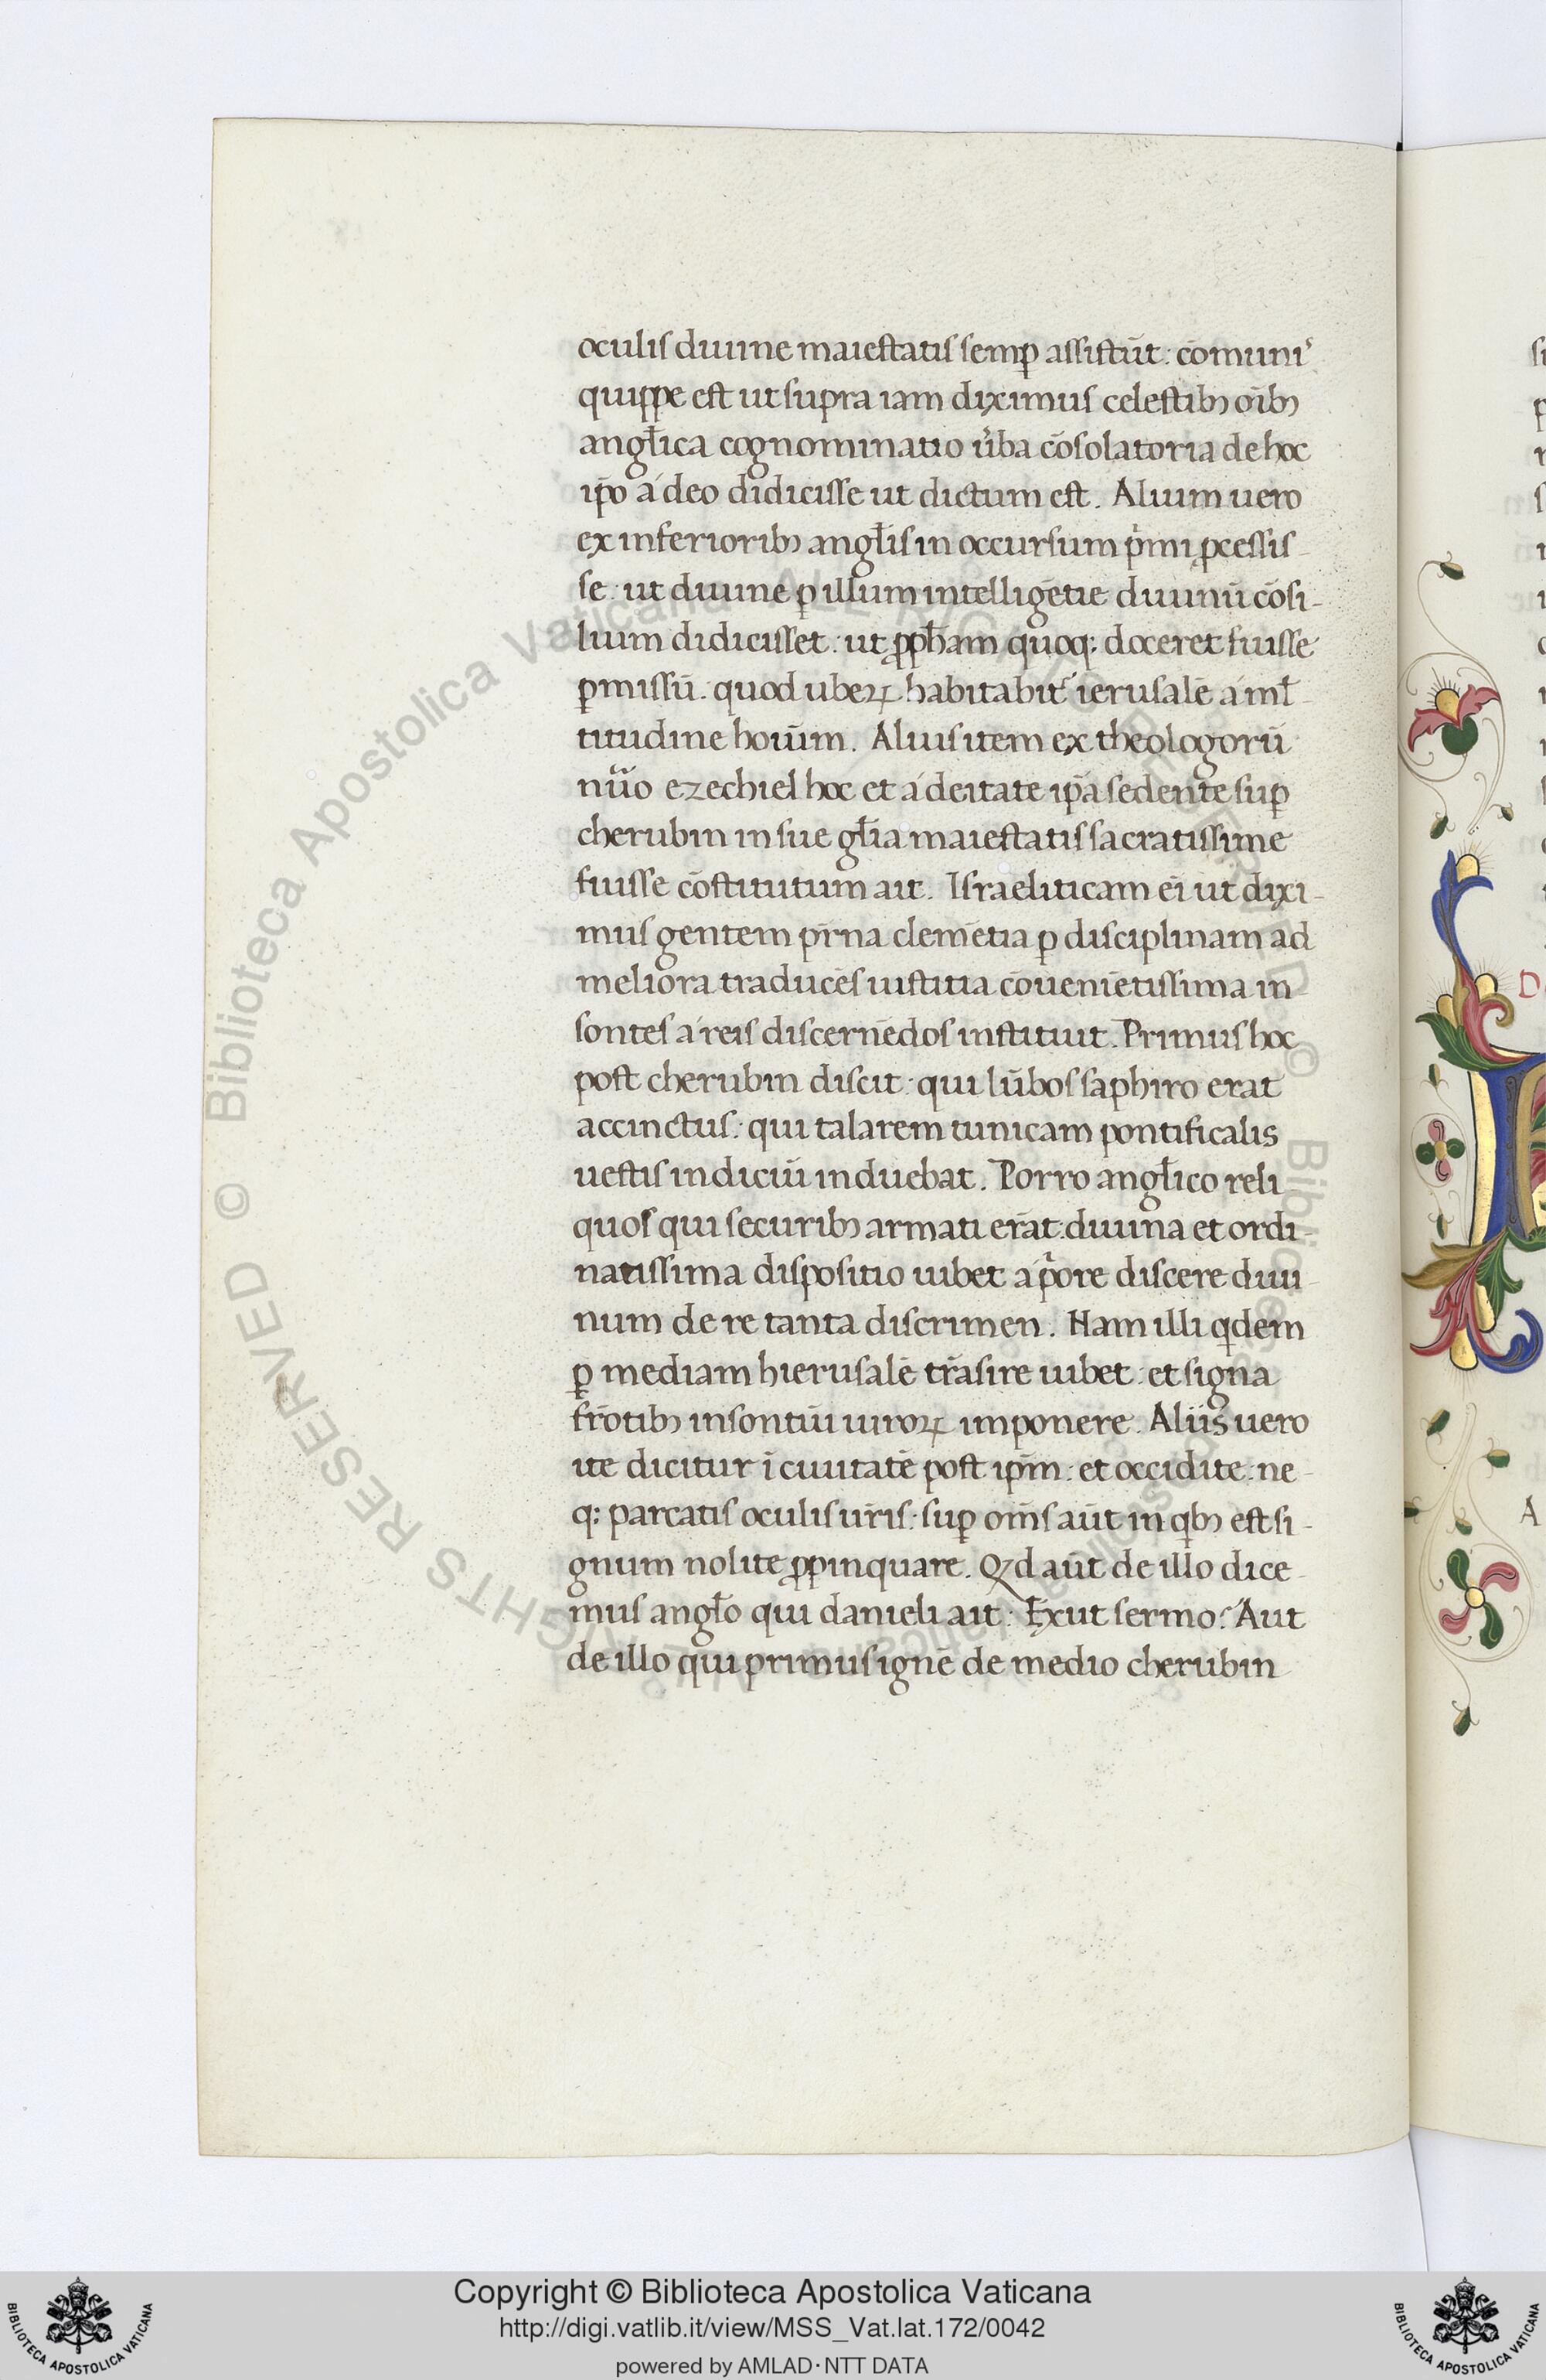 oculis diuine maiestatis semꝑ assistūt: cōmuniˢ
quippe est ut supra iam diximus celestibꝫ oībꝫ
angłica cognominatio ůba cōsolatoria de hoc
ip̄o á deo didicisse ut dictum est. Alium uero
ex inferioribꝫ angłis in occursum pͥmi ꝓcessis-
se: ut diuine ꝑ illum intelligētie diuinū cōsi-
lium didicisset: ut ꝓph̄am quoq; doceret fuisse
ꝑmissū. quod uberꝝ habitabit᷑ ierusalē á mł-
titudine hoıūm. Alius item ex theologorū
nůo ezechiel hoc et á deitate ip̄a sedente suꝑ
cherubin in sue głia maiestatis sacratissime
fuisse cōstitutum ait. Israeliticam eī ut dixi-
mus gentem pr̄na clemētia ꝑ disciplinam ad
meliora traducēs iustitia cōueniētissima in-
sontes á reis discernēdos instituit. Primus hoc
post cherubin discit: qui lūbos saphiro erat
accinctus: qui talarem tunicam pontificalis
uestis indiciū induebat. Porro angłico reli
quos qui securibꝫ armati erāt: diuina et ordi-
natissima dispositio iubet á pͥore discere diui-
num de re tanta discrimen. Nam illi qͥdem
ꝑ mediam hierusalē trāsire iubet: et signa
frōtibꝫ insontiū uiroꝝ imponere. Aliis uero
ite dicitur ī ciuitatē post ip̄m: et occidite: ne-
q; parcatis oculis ur̄is: suꝑ om̄s aūt in qͥbꝫ est si-
gnum nolite ꝓpinquare. Qd aūt de illo dice-
mus angło qui danieli ait: Exiit sermo? Aut
de illo qui primus ignē de medio cherubin
Copyright © Biblioteca Apostolica Vaticana
http://digi.vatlib.it/view/MSS_Vat.lat.172/0042
powered by AMLAD·NTT DATA